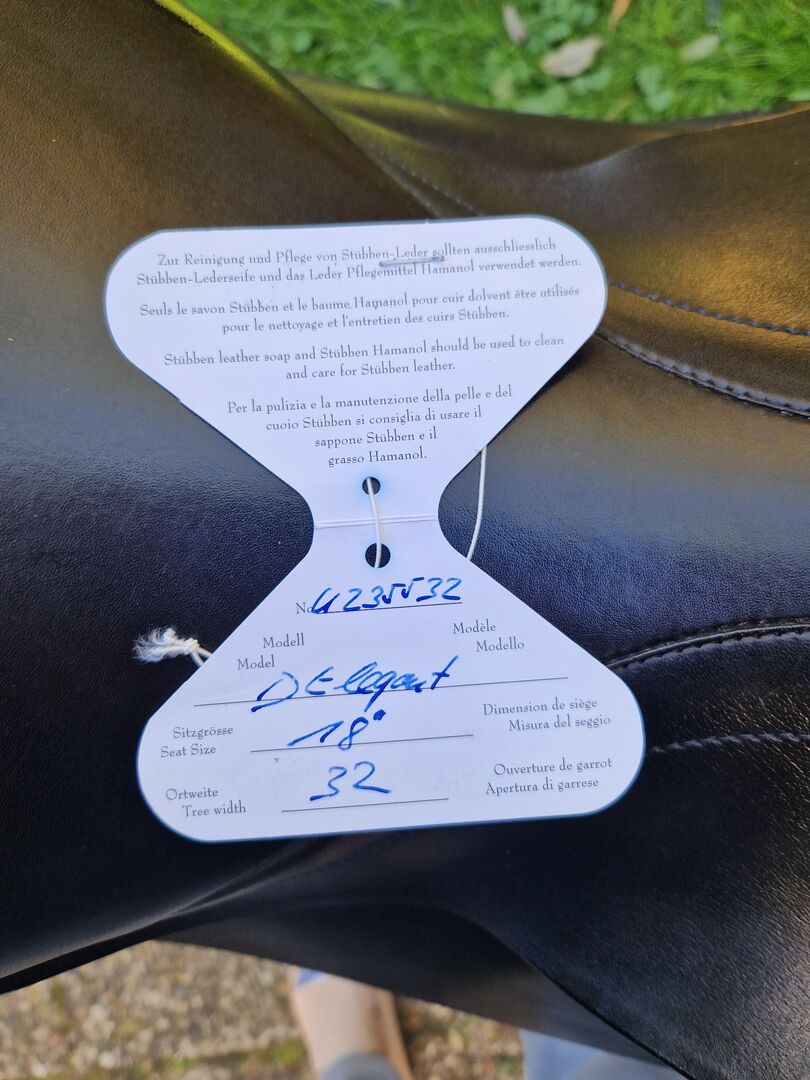 Zur Reinigung und Pflege von Stübben-Leder sollten ausschliesslich
Stübben-Lederseife und das Leder Pflegemittel Hamanol verwendet werden.
Seuls le savon Stübben et le baume Hamanol pour cuir dolvent être utilisés
pour le nettoyage et l'entretien des cuirs Stübben.
Stübben leather soap and Stübben Hamanol should be used to clean
and care for Stübben leather.
Per la pulizia e la manutenzione della pelle e del
cuoio Stübben si consiglia di usare il
sappone Stübben e il
grasso Hamanol.
No 4235532
Modell Modèle
Model Modello
D Elegant
Sitzgrösse 18" Dimension de siège
Seat Size Misura del seggio
Ortweite 32 Ouverture de garrot
Tree width Apertura di garrese